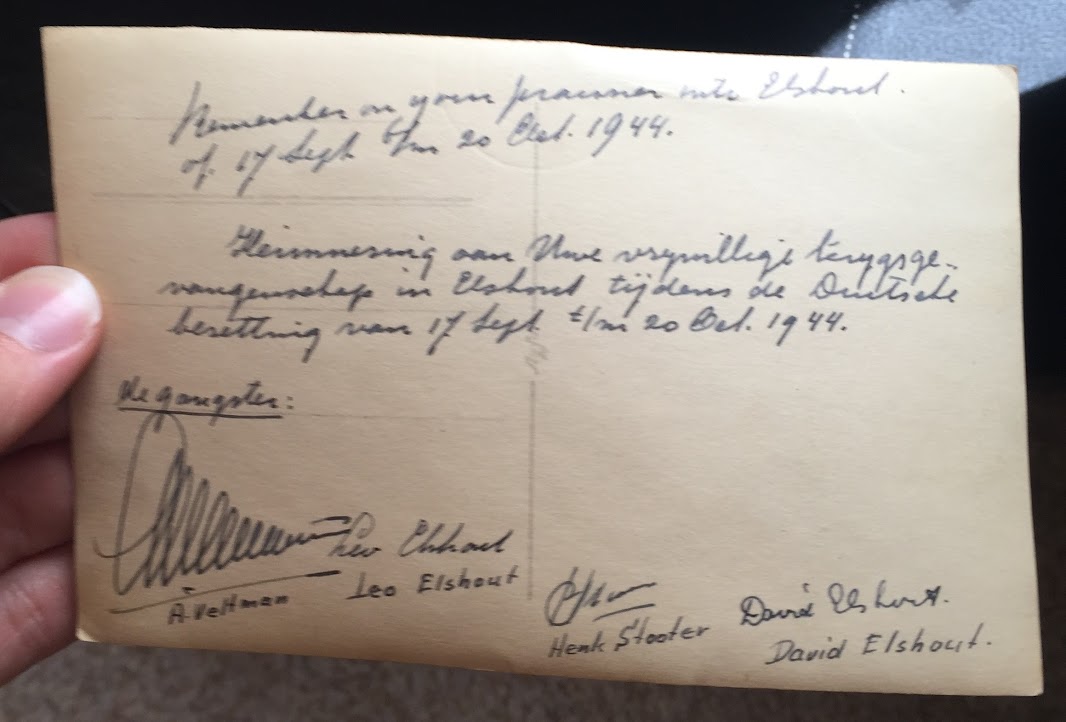 Remember on your prauner into Elshout.
of 17 Sept t/m 20 Oct. 1944.
Herinnering aan Uwe vrywillige krygsge-
vangenschap in Elshout tijdens de Duitsche
besetting van 17 Sept t/m 20 Oct. 1944.
de gangster:
Leo Elshout
A. Veltman
Leo Elshout
David Elshout.
Henk Stooter
David Elshout.